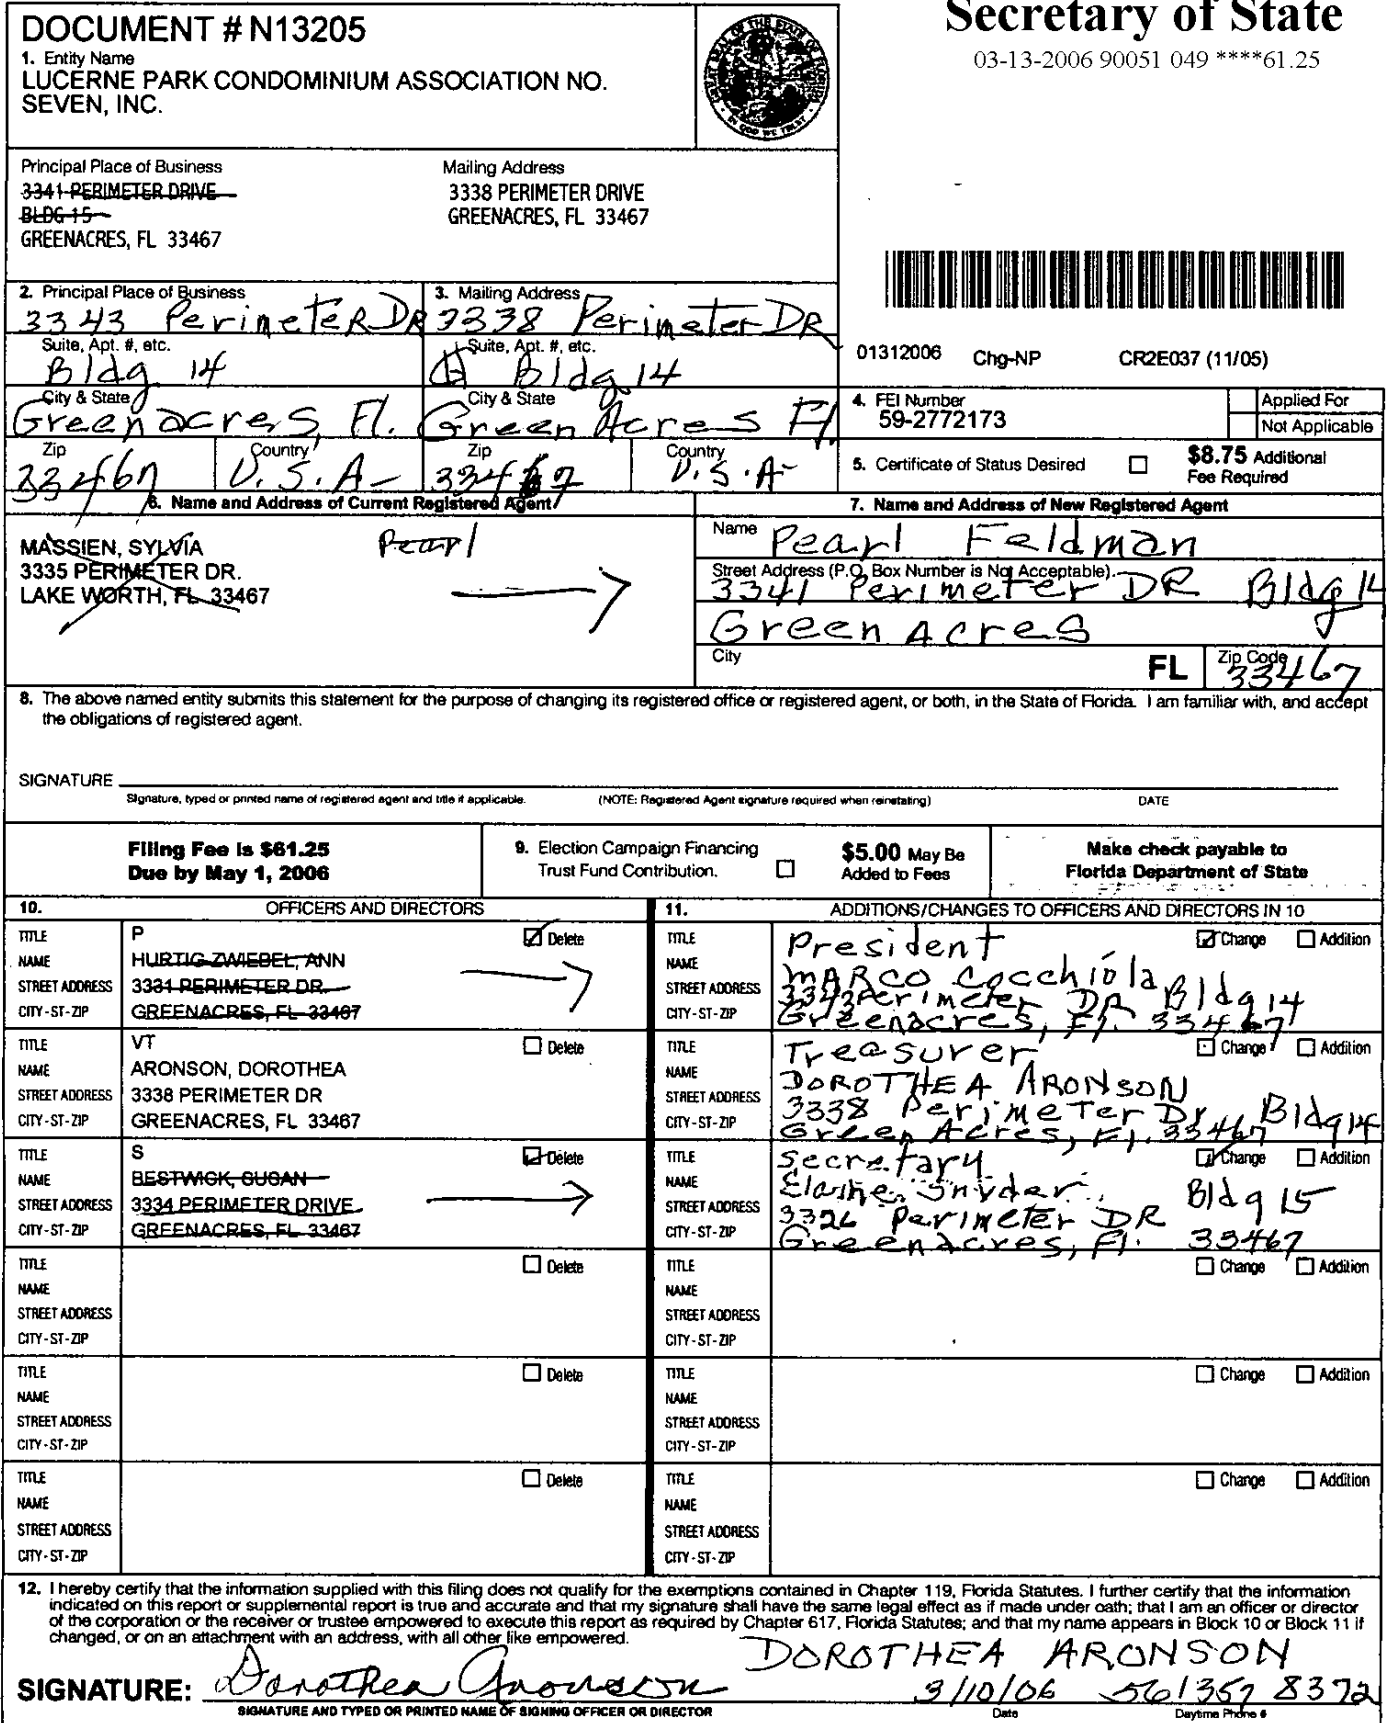 Secretary of State
03-13-2006 90051 049 ****61.25
DOCUMENT # N13205
1. Entity Name
LUCERNE PARK CONDOMINIUM ASSOCIATION NO.
SEVEN, INC.
Principal Place of Business
3341 PERIMETER DRIVE
BLDG 15
GREENACRES, FL 33467
Mailing Address
3338 PERIMETER DRIVE
GREENACRES, FL 33467
2. Principal Place of Business
3343 Perimeter DR
Suite, Apt. #, etc.
Bldg 14
City & State
Greenacres, Fl.
Zip
33467
Country
U.S.A-
3. Mailing Address
3338 Perimeter DR
Suite, Apt. #, etc.
Bldg 14
City & State
Green Acres Fl
Zip
33467
Country
U.S.A-
01312006 Chg-NP CR2E037 (11/05)
4. FEI Number
59-2772173
Applied For
Not Applicable
5. Certificate of Status Desired
$8.75 Additional
Fee Required
6. Name and Address of Current Registered Agent
MASSIEN, SYLVIA
3335 PERIMETER DR.
LAKE WORTH, FL 33467
Pearl
7. Name and Address of New Registered Agent
Name
Pearl Feldman
Street Address (P.O. Box Number is Not Acceptable)
3341 Perimeter DR Bldg 14
Green Acres
City
FL
Zip Code
33467
8. The above named entity submits this statement for the purpose of changing its registered office or registered agent, or both, in the State of Florida. I am familiar with, and accept
the obligations of registered agent.
SIGNATURE
Signature, typed or printed name of registered agent and title if applicable.
(NOTE: Registered Agent signature required when reinstating)
DATE
Filing Fee is $61.25
Due by May 1, 2006
9. Election Campaign Financing
Trust Fund Contribution.
$5.00 May Be
Added to Fees
Make check payable to
Florida Department of State
10. OFFICERS AND DIRECTORS
11. ADDITIONS/CHANGES TO OFFICERS AND DIRECTORS IN 10
TITLE P Delete
NAME HURTIG-ZWIEBEL, ANN
STREET ADDRESS 3331 PERIMETER DR.
CITY-ST-ZIP GREENACRES, FL 33467
TITLE President Change Addition
NAME MARCO Cocchiola
STREET ADDRESS 3343 Perimeter DR Bldg 14
CITY-ST-ZIP Greenacres, Fl. 33467
TITLE VT Delete
NAME ARONSON, DOROTHEA
STREET ADDRESS 3338 PERIMETER DR
CITY-ST-ZIP GREENACRES, FL 33467
TITLE Treasurer Change Addition
NAME DOROTHEA ARONSON
STREET ADDRESS 3338 Perimeter Dr Bldg 14
CITY-ST-ZIP Green Acres, Fl. 33467
TITLE S Delete
NAME BESTWICK, SUSAN
STREET ADDRESS 3334 PERIMETER DRIVE
CITY-ST-ZIP GREENACRES, FL 33467
TITLE Secretary Change Addition
NAME Elaine Snyder
STREET ADDRESS 3326 Perimeter DR Bldg 15
CITY-ST-ZIP Greenacres, Fl. 33467
TITLE Delete
NAME
STREET ADDRESS
CITY-ST-ZIP
TITLE Change Addition
NAME
STREET ADDRESS
CITY-ST-ZIP
TITLE Delete
NAME
STREET ADDRESS
CITY-ST-ZIP
TITLE Change Addition
NAME
STREET ADDRESS
CITY-ST-ZIP
TITLE Delete
NAME
STREET ADDRESS
CITY-ST-ZIP
TITLE Change Addition
NAME
STREET ADDRESS
CITY-ST-ZIP
12. I hereby certify that the information supplied with this filing does not qualify for the exemptions contained in Chapter 119, Florida Statutes. I further certify that the information
indicated on this report or supplemental report is true and accurate and that my signature shall have the same legal effect as if made under oath; that I am an officer or director
of the corporation or the receiver or trustee empowered to execute this report as required by Chapter 617, Florida Statutes; and that my name appears in Block 10 or Block 11 if
changed, or on an attachment with an address, with all other like empowered.
DOROTHEA ARONSON
SIGNATURE: Dorothea Aronson 3/10/06 561 357 8372
SIGNATURE AND TYPED OR PRINTED NAME OF SIGNING OFFICER OR DIRECTOR
Date
Daytime Phone #